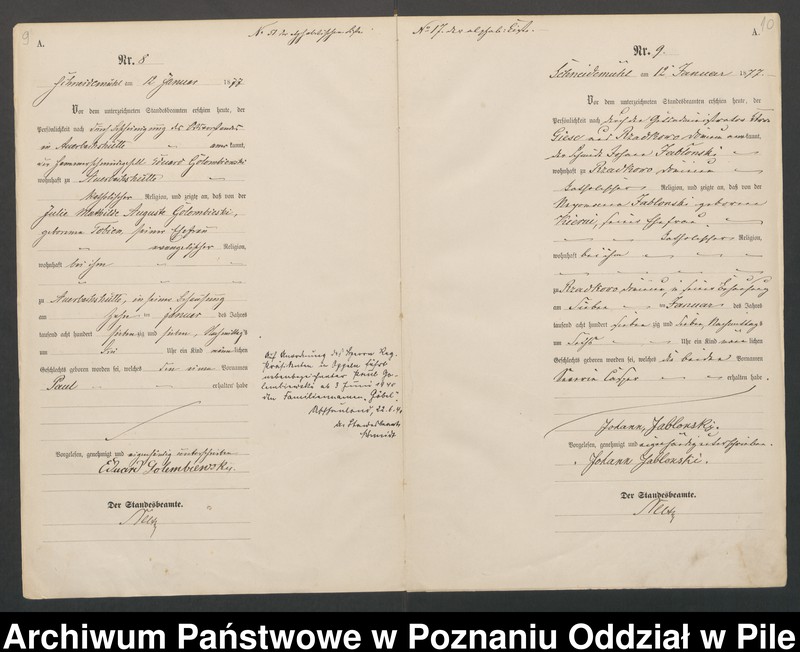 9
A.
Nr. 8
Schneidemühl am 12 Januar 1877
Vor dem unterzeichneten Standesbeamten erschien heute, der
Persönlichkeit nach durch
in Auerbachshütte kannt,
Eduard Golombiewski
wohnhaft zu Auerbachshütte
katholischer Religion, und zeigte an, daß von der
Julie Mathilde Auguste Golombieski,
geborene seiner Ehefrau
evangelischer Religion,
wohnhaft bei ihm
zu Auerbachshütte, in seiner Behausung
am zehn ten Januar des Jahres
tausend acht hundert siebenzig und sieben, Nachmittags
um Uhr ein Kind männlichen
Geschlechts geboren worden sei, welches den einen Vornamen
Paul erhalten habe
Vorgelesen, genehmigt und eigenhändig unterschrieben
Eduard Golembiewski.
Der Standesbeamte.
Auf Anordnung des Herrn Reg.
Präsidenten in Oppeln führt
nebenbezeichneter Paul Go-
lembiewski ab 3 Juni 1940
den Familiennamen „Göbel".
Der Standesbeamte
Schmidt
No 17. des alphab. Liste.
10
A.
Nr. 9
Schneidemühl am 12 Januar 1877
Vor dem unterzeichneten Standesbeamten erschien heute, der
Persönlichkeit nach durch den Gutsadministrator Herrn
Giese aus Rzadkowo kannt,
der Schmidt Johann Jablonski
wohnhaft zu Rzadkowo,
katholischer Religion, und zeigte an, daß von der
Jablonski geborene
seiner Ehefrau
katholischer Religion,
wohnhaft bei ihm
zu Rzadkowo in seiner Behausung
am sieben ten Januar des Jahres
tausend acht hundert siebenzig und sieben, Nachmittags
um sechs Uhr ein Kind männlichen
Geschlechts geboren worden sei, welches die beiden Vornamen
erhalten habe.
Johann Jablonski.
Vorgelesen, genehmigt und eigenhändig unterschrieben.
Johann Jablonski.
Der Standesbeamte.
Archiwum Państwowe w Poznaniu Oddział w Pile